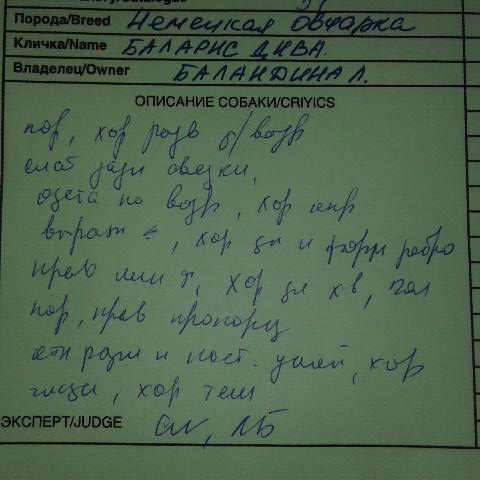 Порода/Breed Немецкая овчарка
Кличка/Name БАЛАРИС ДИВА
Владелец/Owner БАЛАНДИНА Л.
ОПИСАНИЕ СОБАКИ/CRIYICS
пор, хор разв д/возр
слаб задн связки,
одета по возр, хор
выраж, хор дл и форм ребро
прав лин, хор дл хв, гол
пор, прав пропорц
разм и пост. ушей, хор
глаза, хор темп
ЭКСПЕРТ/JUDGE